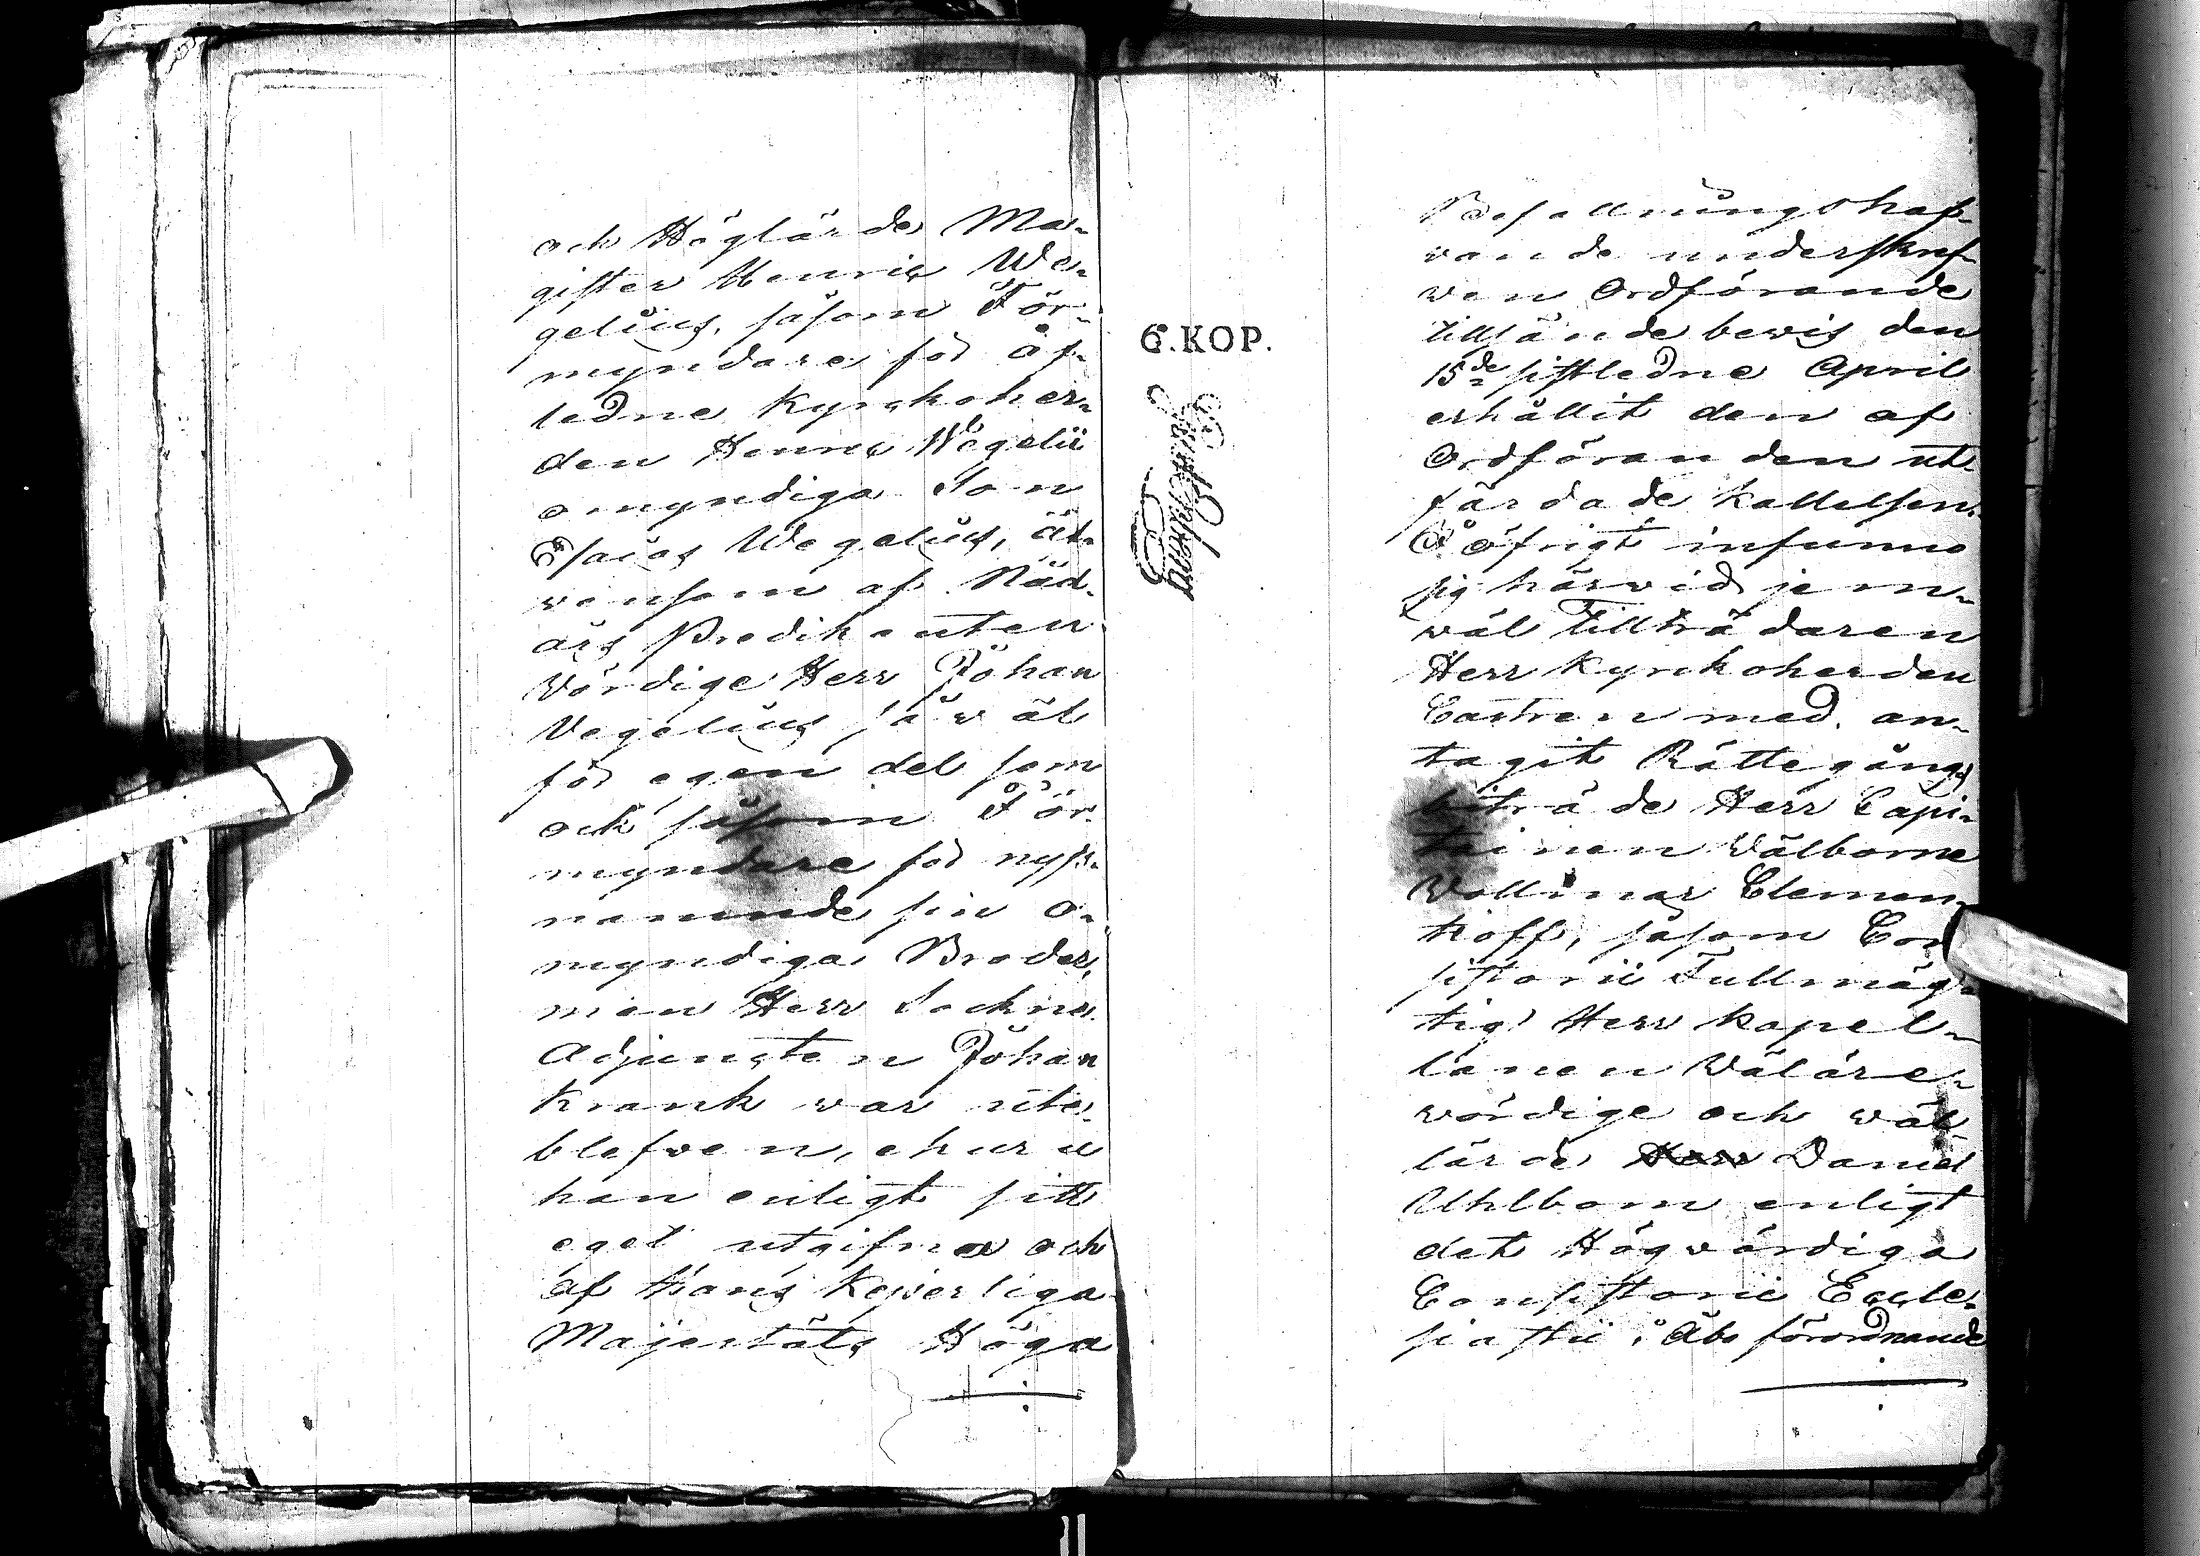 och Höglärde Ma-
gister Henric We-
gelius, såsom För-
myndare för af-
ledne Kyrckoher-
den Henric Wegelii
omyndiga Son
Esaias Wegelius, äf-
wensom af Nåd-
års Predikanten
Wördige Herr Johan
Vegelius så wäl
för egen del som
ock såsom För-
myndare för nyss-
namnde sin o-
myndiga Broder,
men Herr Sockne
Adjuncten Johan
Krank war ute-
blefven, ehuru
han enligt sitt
eget utgifna och
af Hans Kejserliga
Majestäts Höga
6. KOP.
Befallningshaf-
vande underskref-
wen Ordförande
tillsände bewis den
15de sistledne April
erhållit den af
Ordföranden ut-
färdade Kallelsen.
I öfrigt infunno
sig härwid jem-
wäl Tillträdaren
Herr Kyrckoherden
Castren med an-
tagit Rättegångs
biträde Herr Capi-
tainen Wälborne
Wollimar Clemen-
toff, såsom Con-
sistorii Fullmäg-
tig Herr Kapel-
lanen Wäläre-
wördige och wäl-
lärde Herr Daniel
Uhlbom enligt
det Högwördiga
Consistorii Eccle-
siastii i Åbo förordnande